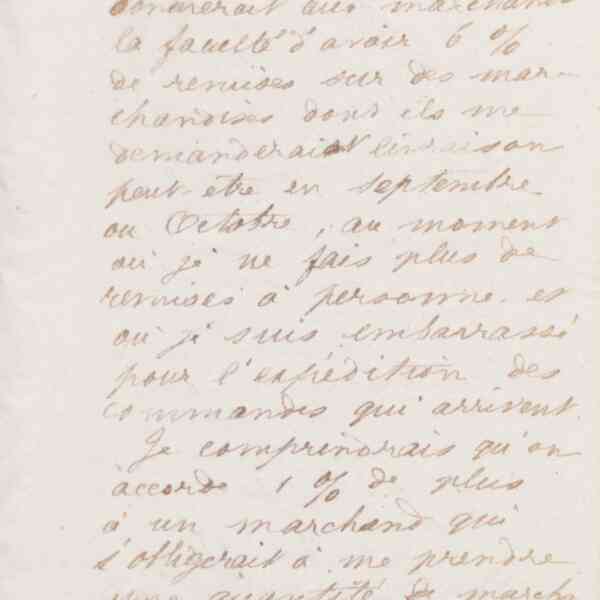 donnerait aux marchands
la faculté d'avoir 6 %
de remises sur des mar-
chandises dont ils me
demanderaient livraison
peut-être en septembre
ou Octobre, au moment
où je ne fais plus de
remises à personne et
où je suis embarrassé
pour l'expédition des
commandes qui arrivent.
Je comprendrais qu'on
accorde 1 % de plus
à un marchand qui
s'obligerait à me prendre
une quantité de march